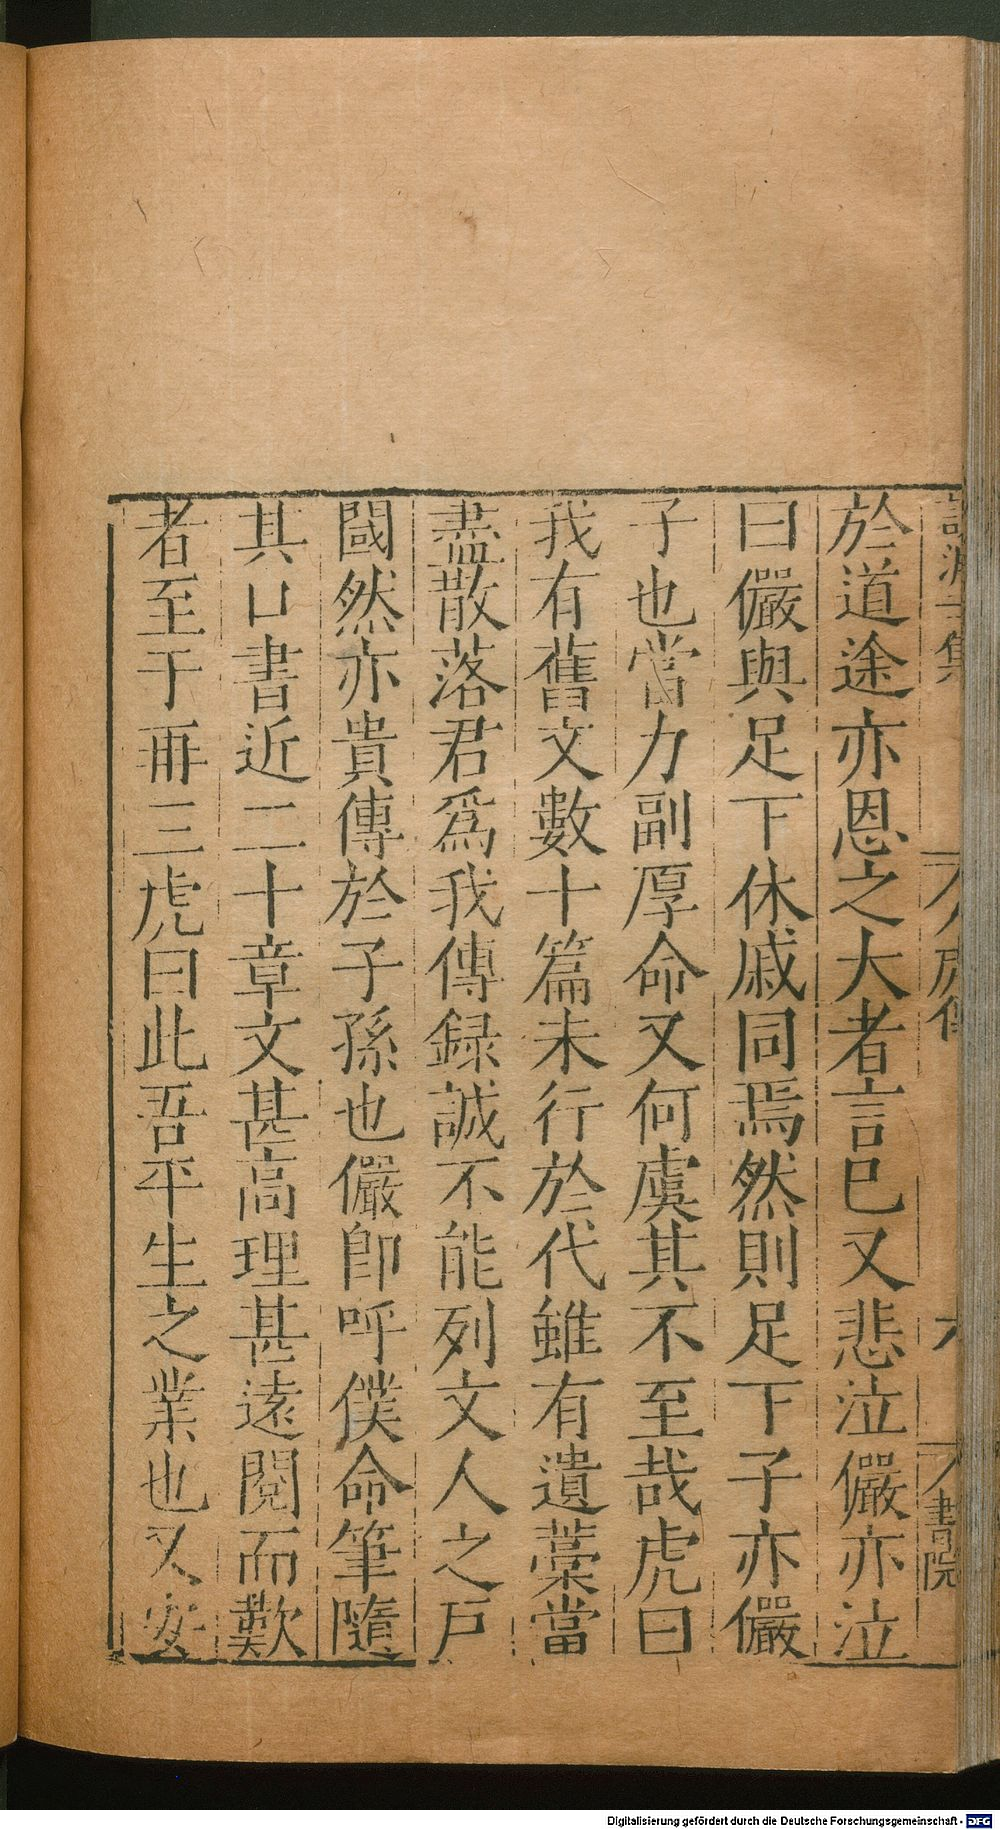 於道途亦恩之大者言已又悲泣儼亦泣
曰儼與足下休戚同焉然則足下子亦儼
子也當力副厚命又何虞其不至哉虎曰
我有舊文數十篇未行於代雖有遺藁當
盡散落君爲我傳録誠不能列文人之戸
閾然亦貴傳於子孫也儼卽呼僕命筆隨
其口書近二十章文甚高理甚遠閱而歎
者至于再三虎曰此吾平生之業也又安
Digitalisierung gefördert durch die Deutsche Forschungsgemeinschaft - DFG